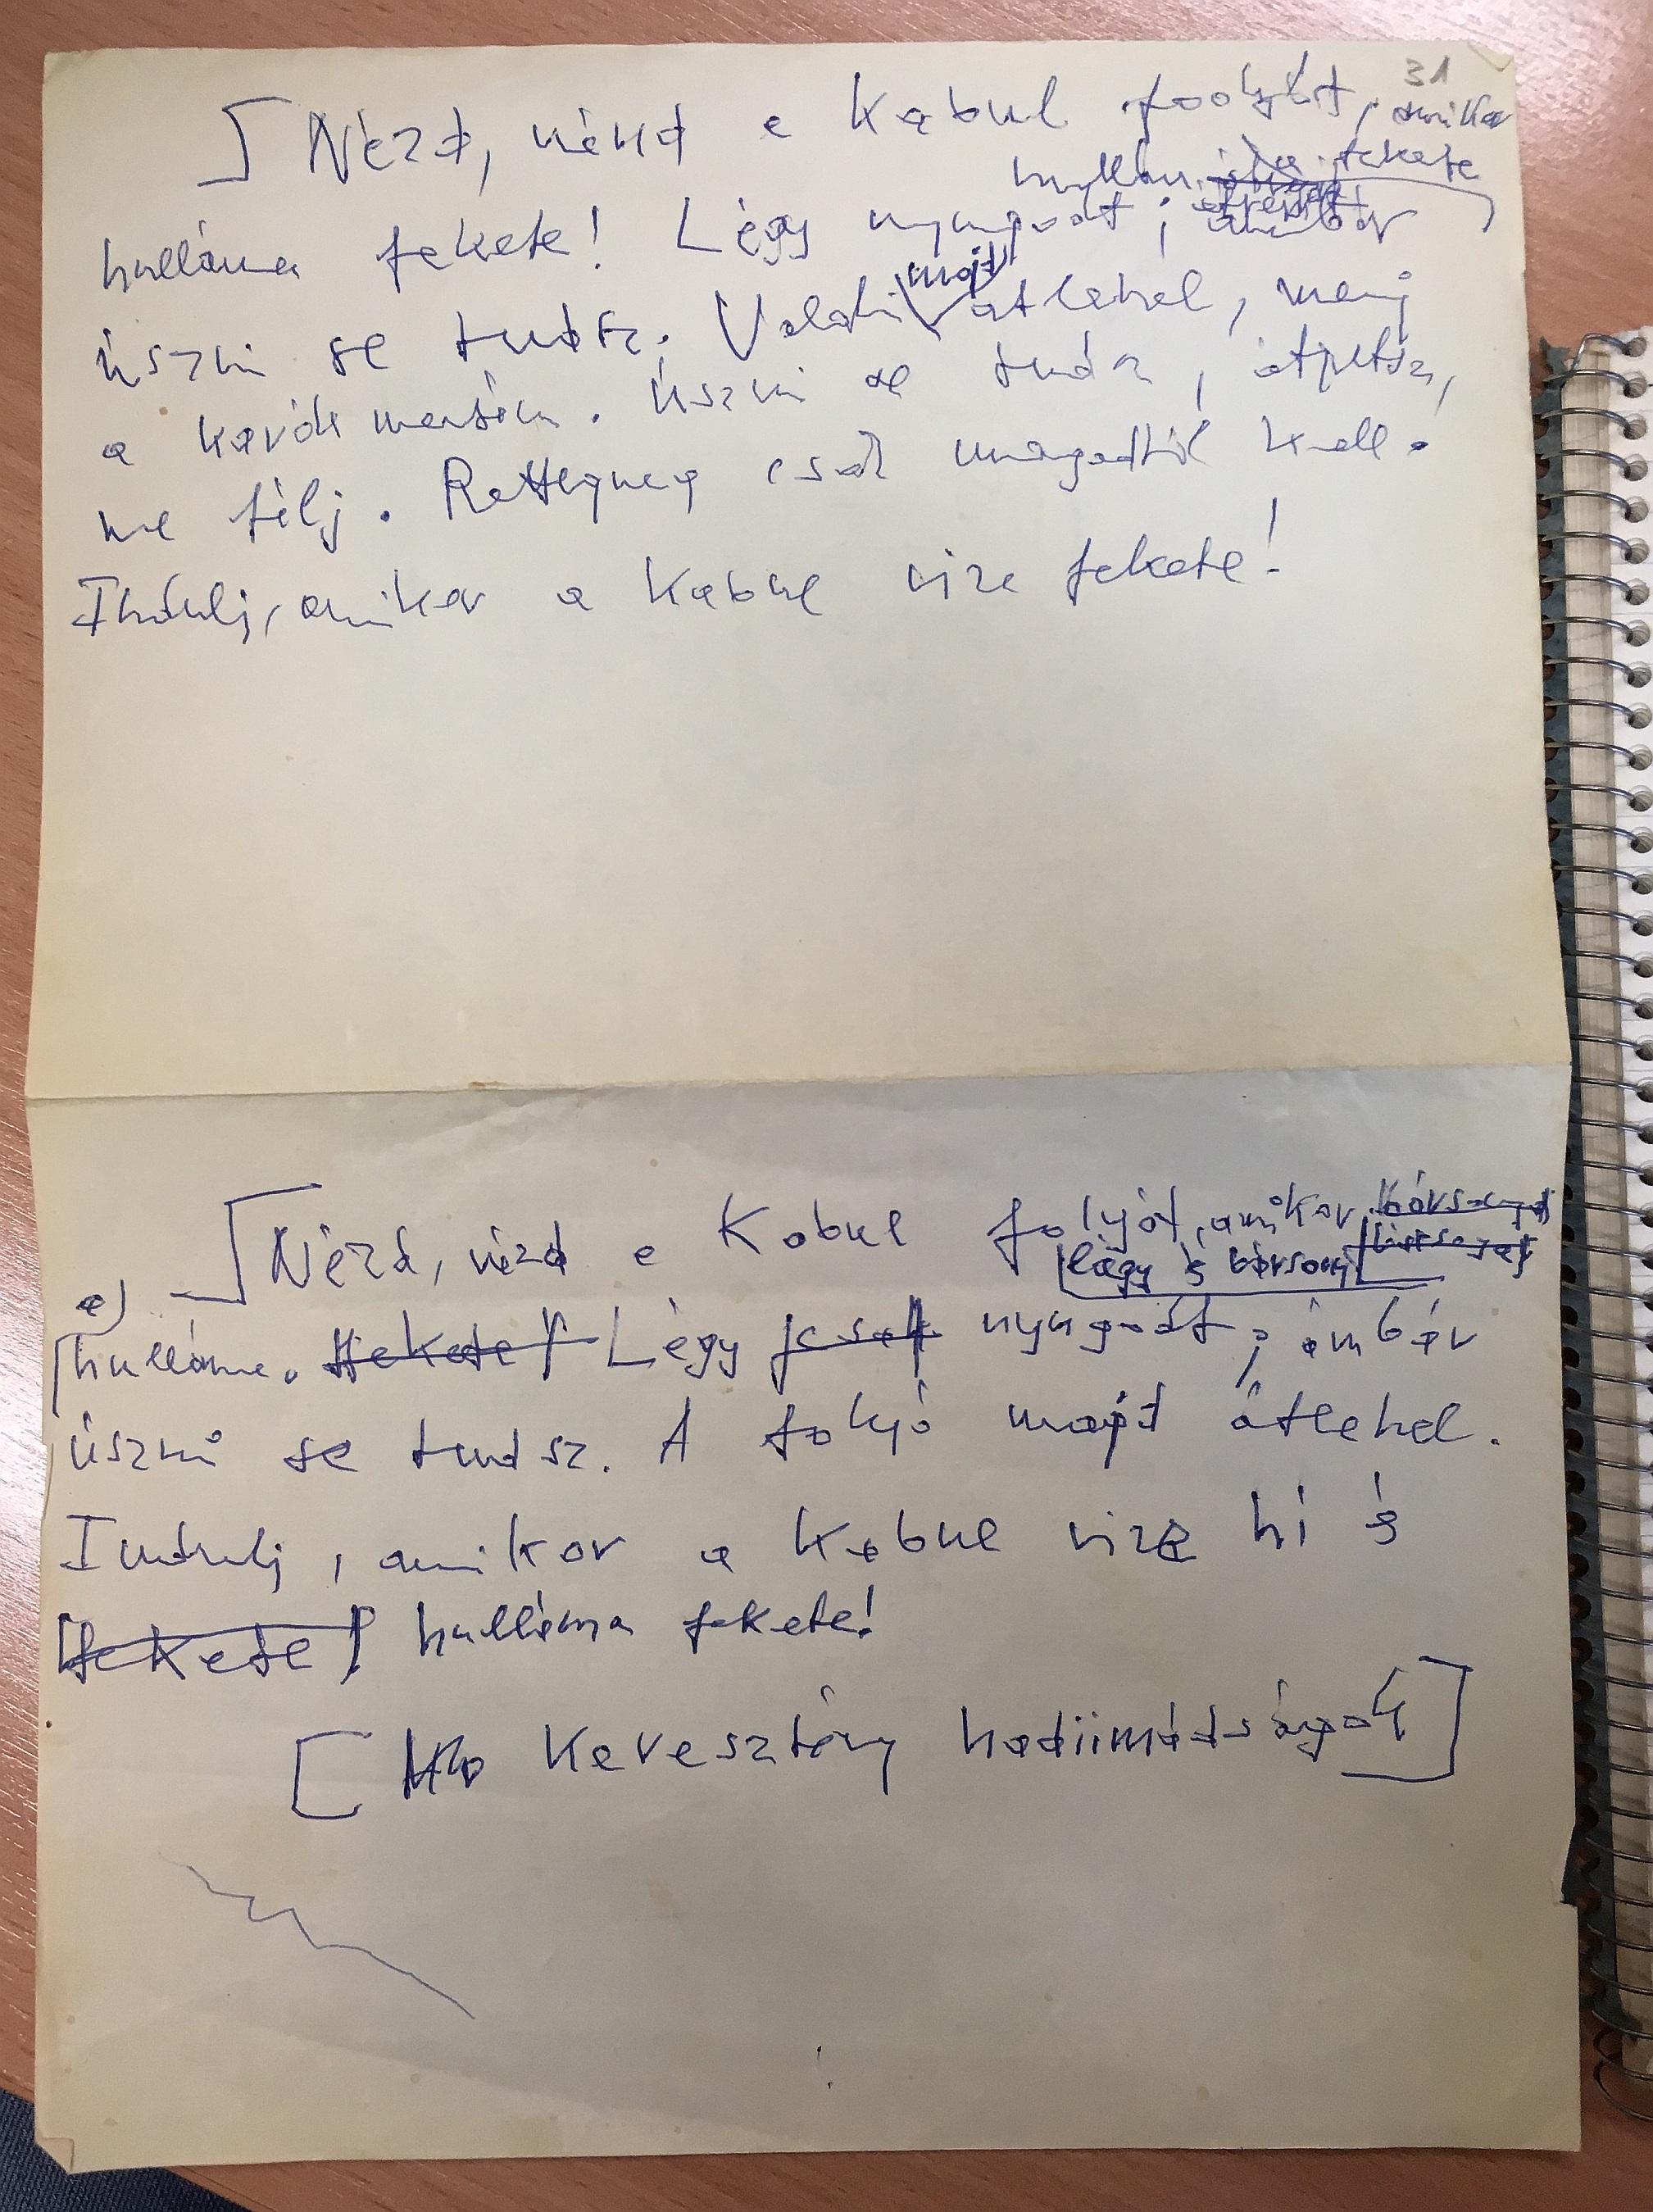 31
Nézd, nézd a Kabul folyót, amikor
fekete
hulláma fekete! Légy nyugodt; ámbár
majd
úszni se tudsz. Valaki átlehel, menj
a karók mentén. Úszni se tudsz, átjutsz,
ne félj. Rettegned csak magadtól kell.
Indulj, amikor a Kabul vize fekete!
Nézd, nézd a Kabul folyót, amikor bársonyos
lágy és bársony
a)
hulláma. fekete! Légy csak nyugodt; ámbár
úszni se tudsz. A folyó majd átlehel.
Indulj, amikor a Kabul vize hí és
fekete! hulláma fekete!
[Keresztény hadiimádságok]